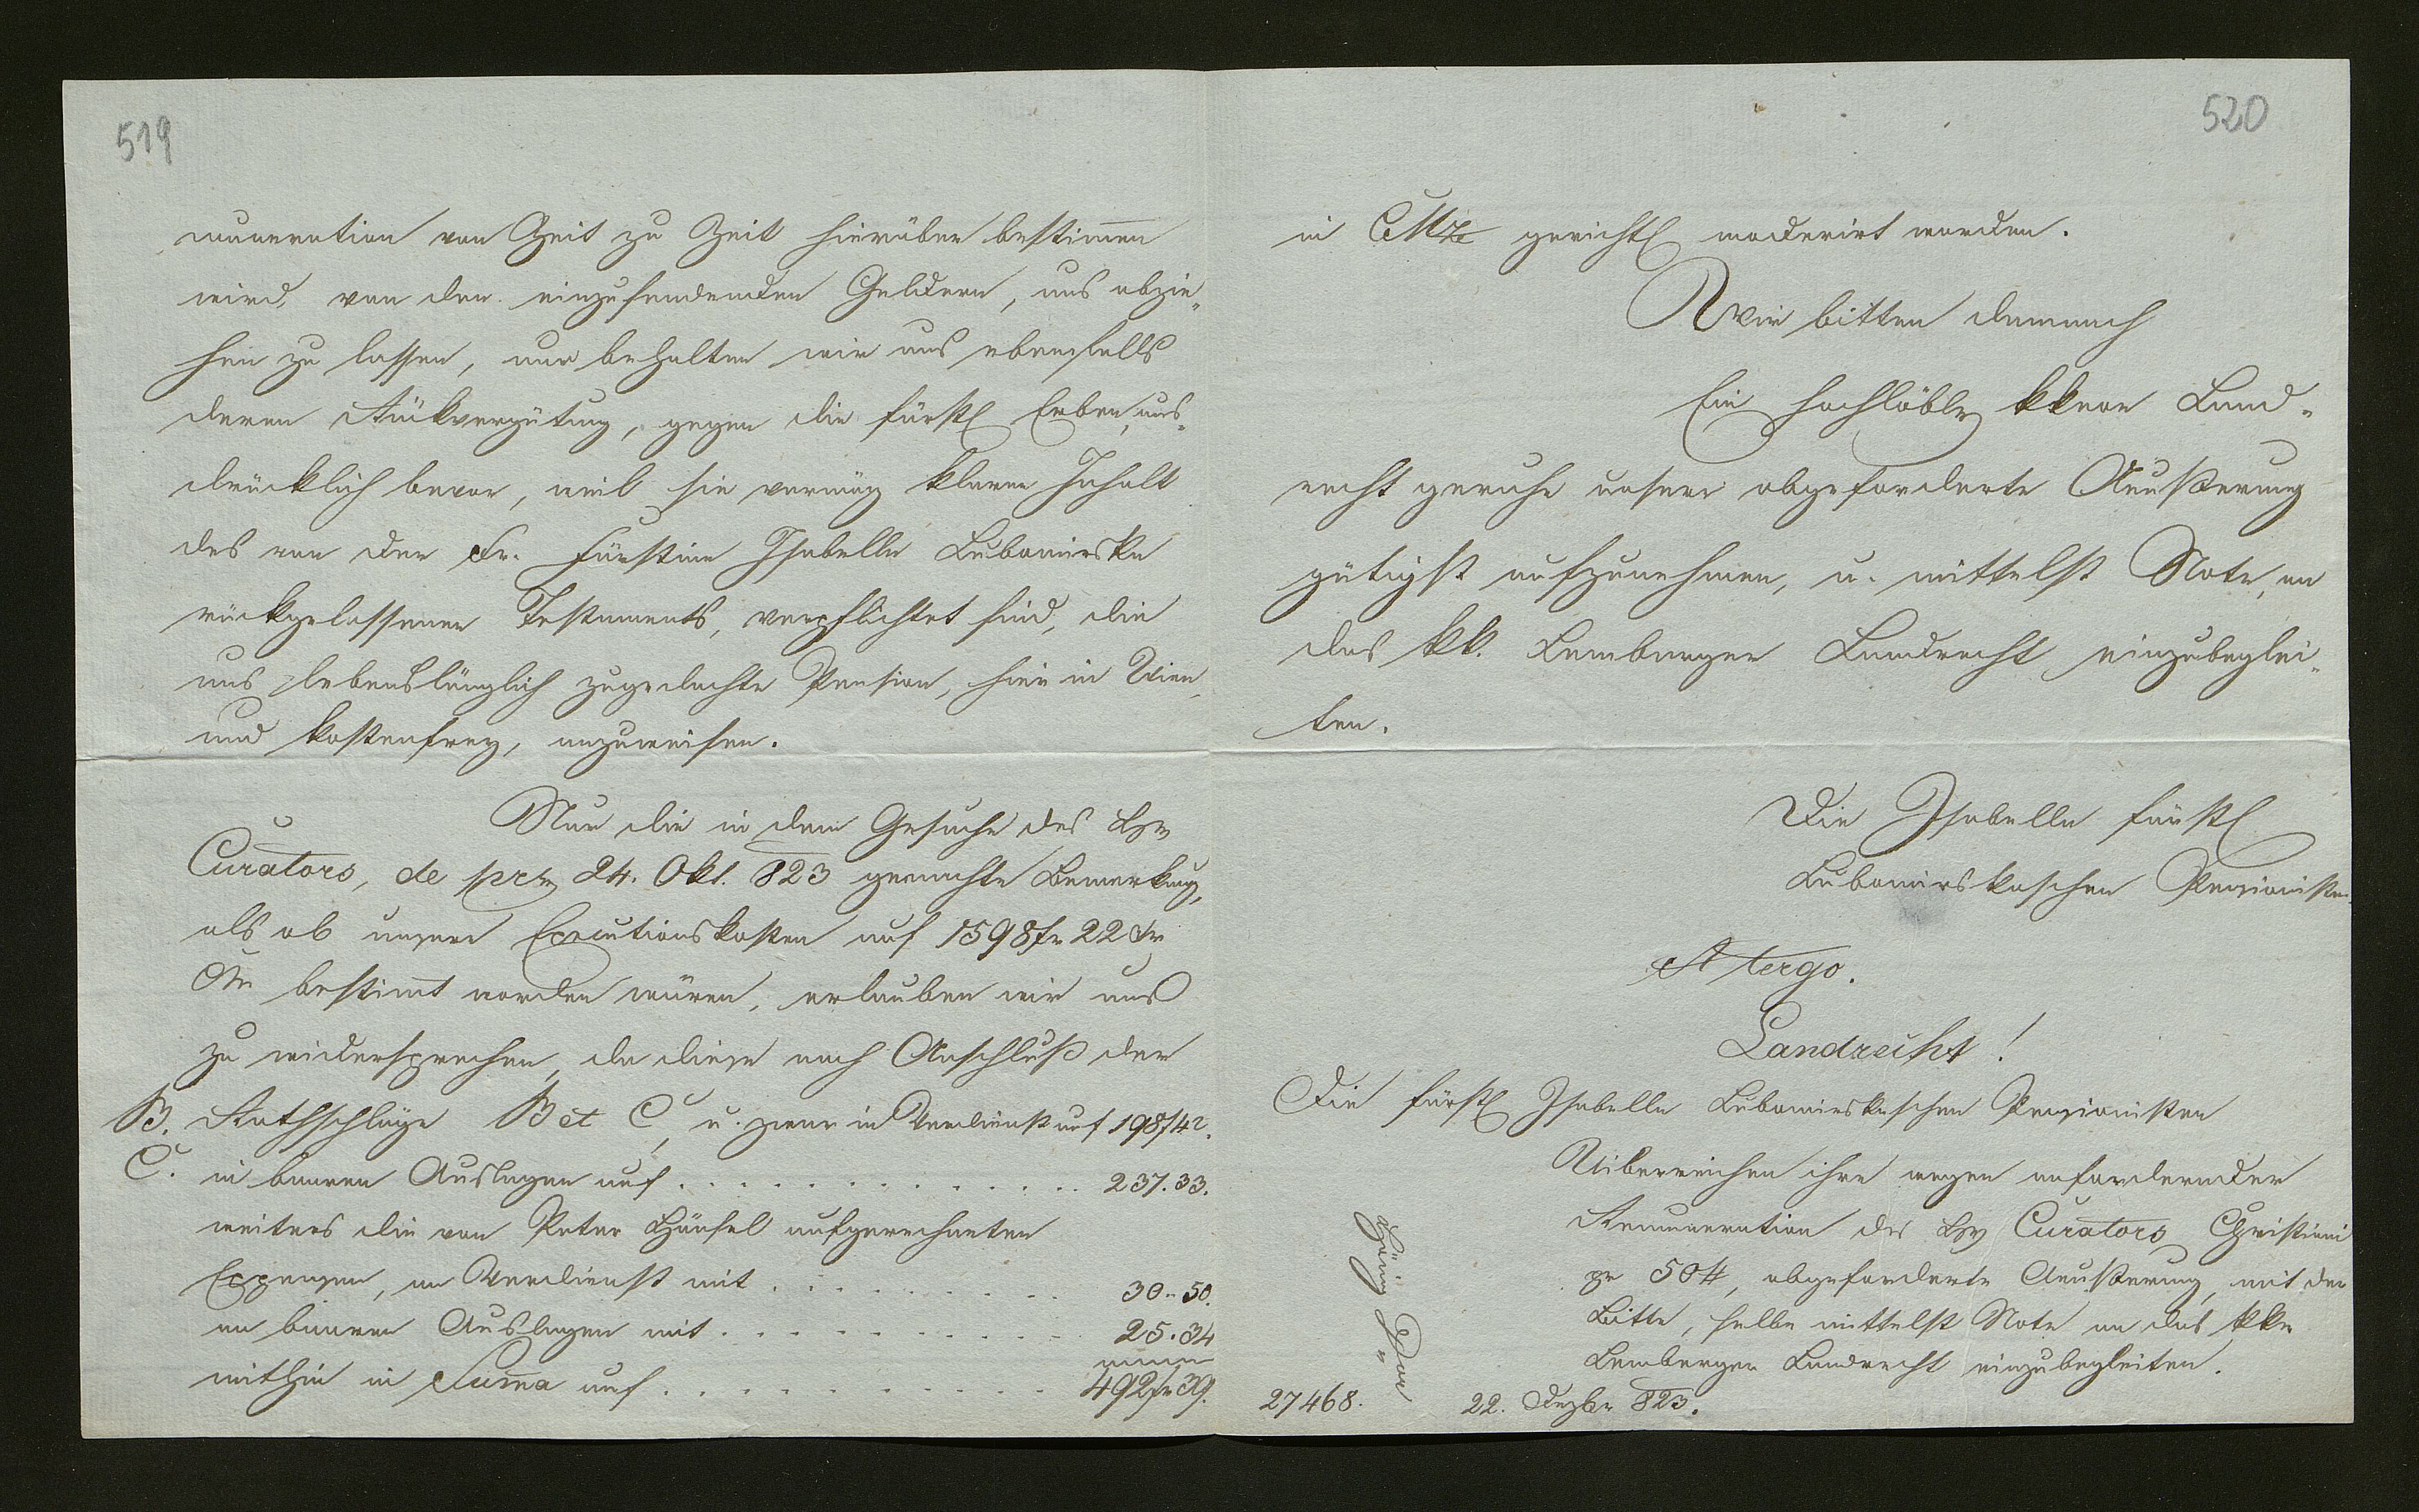 519
muneration von Zeit zu Zeit hierüber bestim̅en
wird, von den einzusendenden Geldern, uns abzie„
hen zu lassen, nur behalten wir uns ebenfalls
deren Rükvergütung, gegen die fürstl Erben, aus„
drücklich bevor, weil sie vermög klaren Inhalt
des von der Fr. Fürstinn Isabella Lubomirska
rückgelassenen Testaments, verpflichtet sind, die
uns lebenslänglich zugedachte Pension, hier in Wien,
und kostenfrey, anzuweisen.
Nur die in dem Gesuche des H
Curators, de prs 24. Okt. 823 gemachte Bemerkung,
als ob unsere Executionskosten auf 1598 fr 22 xr
bestim̅t worden wären, erlauben wir uns
zu widersprechen, da diese nach Anschluß der
B. Rathschläge B et C, u. zwar in Verdienst auf 198 f 42.
C. in baaren Auslagen auf . . . . . . . . . . . . . 237.33.
weiters die von Peter Hänsel aufgerechneten
Expensen, an Verdienst mit . . . . . . . . . 30.. 50.
an baaren Auslagen mit . . . . . . . . . . . 25.34
mithin in Sum̅a auf . . . . . . . . . . . 492 fr 39.
520
in CMze gerichtl moderirt worden.
Wir bitten demnach
Ein hochlöbl kk Land„
recht geruhe unsere abgeforderte Aeußerung
gütigst aufzunehmen, u. mittelst Note, an
das kk. Lemberger Landrecht einzubeglei„
ten.
Die Isabella fürstl
Lubomirskaschen Pensionisten
A tergo.
Landrecht!
Die fürstl Isabella Lubomirskaschen Pensionisten
Uiberreichen ihre wegen anfordernder
Remuneration des H Curators Christiani
pr 50 #, abgeforderte Aeußerung, mit der
Bitte, selbe mittelst Note an das kk
Lemberger Landrecht einzubegleiten.
27468. 22. Dezbr 823.